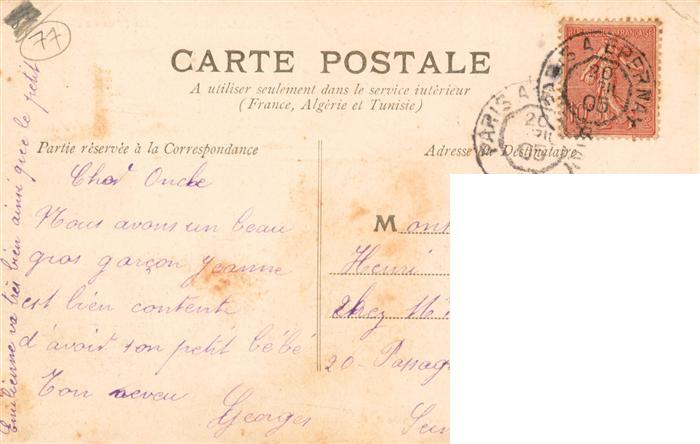 77
CARTE POSTALE
A utiliser seulement dans le service intérieur
(France, Algérie et Tunisie)
Partie réservée à la Correspondance
Adresse du Destinataire
Cher Oncle
Nous avons un beau
gros garçon Jeanne
est bien contente
d'avoir son petit bébé
Ton neveu
Georges
Emilienne va très bien ainsi que le petit
Mons
Henri
Chez M
20 - Passag
PARIS A
20
05
PARIS A EPERNAY
20
05